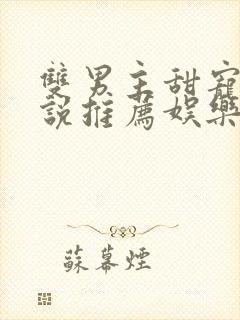 雙男主甜寵
說推薦娛樂
蘇幕煙